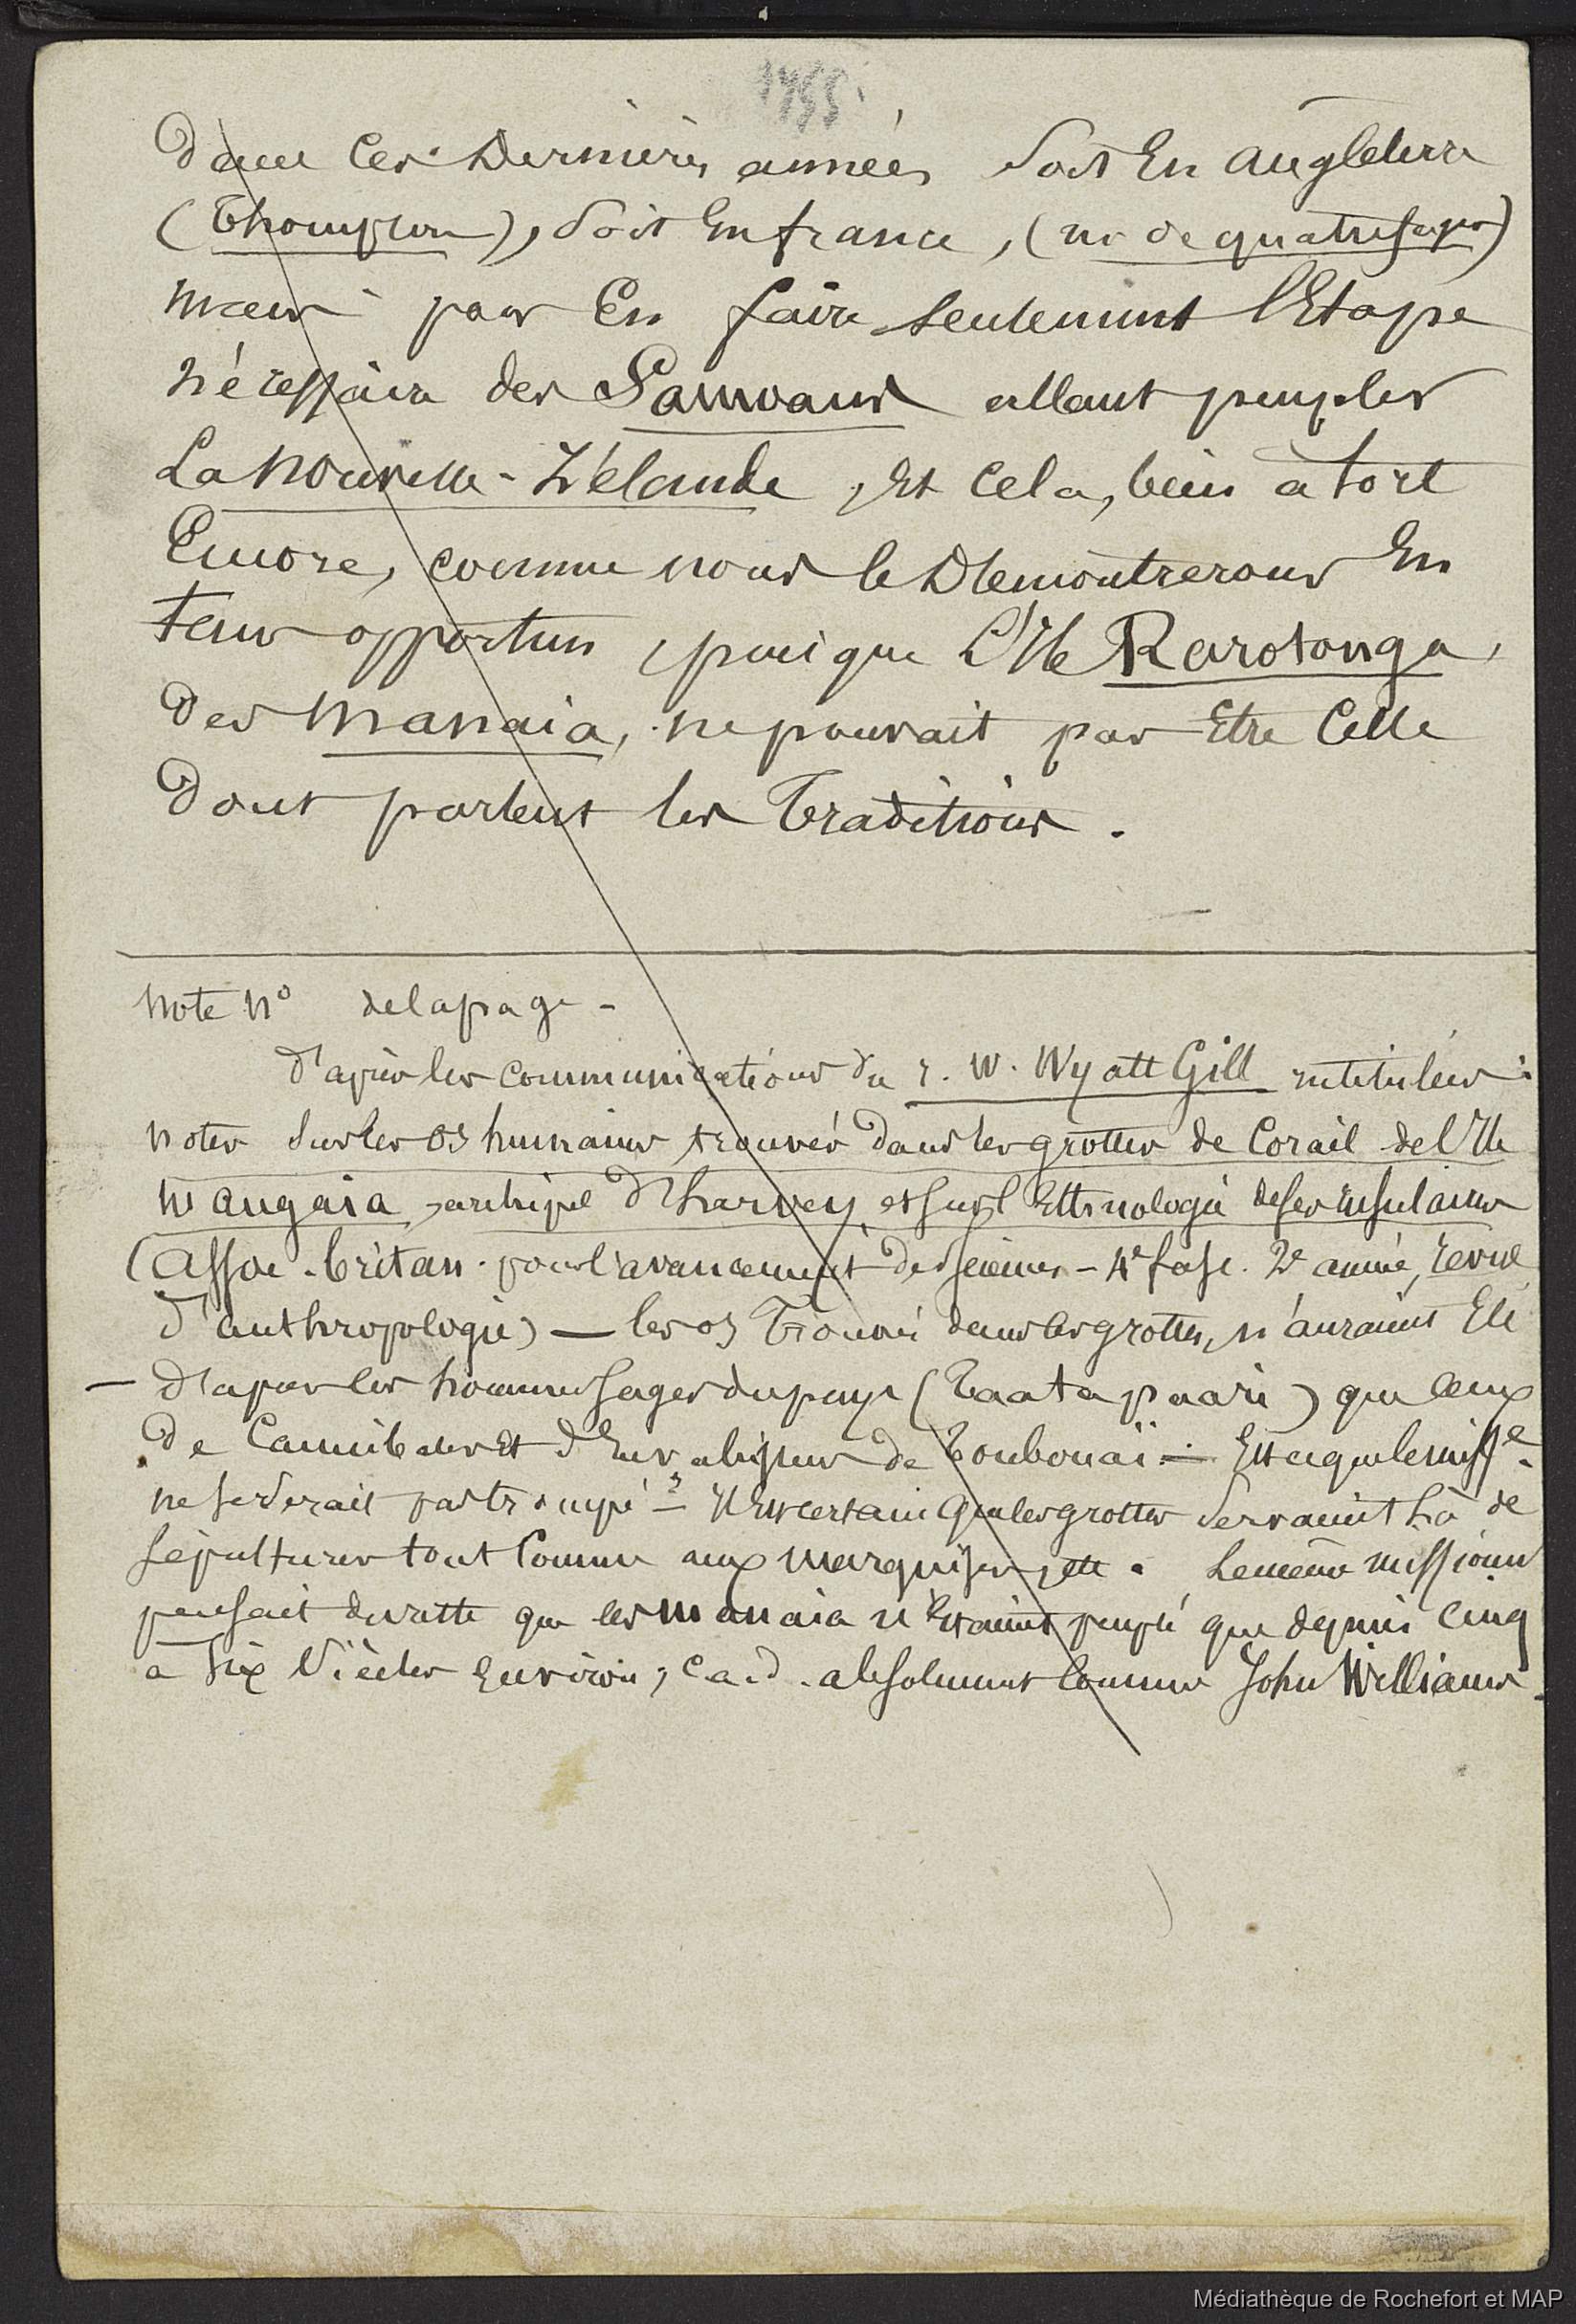 1455
Dans ces Dernières années soit En angleterre
(Thompson), soit En france, (mr de quatrefages)
mais pour En faire seulement l'Etape
nécessaire des Samoans allant peupler
La Nouvelle-Zélande, Et cela, bien à tort
Encore, comme nous le Démontrerons En
tems opportun, puisque L'Ile Rarotonga,
des Manaia, ne pouvait pas Etre Celle
Dont parlent les Traditions.
Note N° de la page -
D'après les communications du r. W. Wyatt Gill intitulées:
notes sur les os humains trouvés dans les grottes de Corail de l'Ile
Mangaia, archipel D'harvey, et sur l'Ethnologie de ses insulaires
(assoc. britan. pour l'avancement des sciences - 4e fasc. 2e année, revue
D'anthropologie) — les os Trouvés dans les grottes, n'auraient Eté
— D'après les hommes sages du pays (Taata paari) que ceux
De Cannibales et D'Envahisseurs de Toubouaï — Est-ce que le missre
ne se serait pas trompé ? — Il Est certain que les grottes servaient là de
sépultures tout Comme aux marquises, etc. Le même missionn
pensait du reste que les Manaia n'Etaient peuplé que depuis Cinq
à six siècles Environ, c.a.d. absolument Comme John Williams.
Médiathèque de Rochefort et MAP